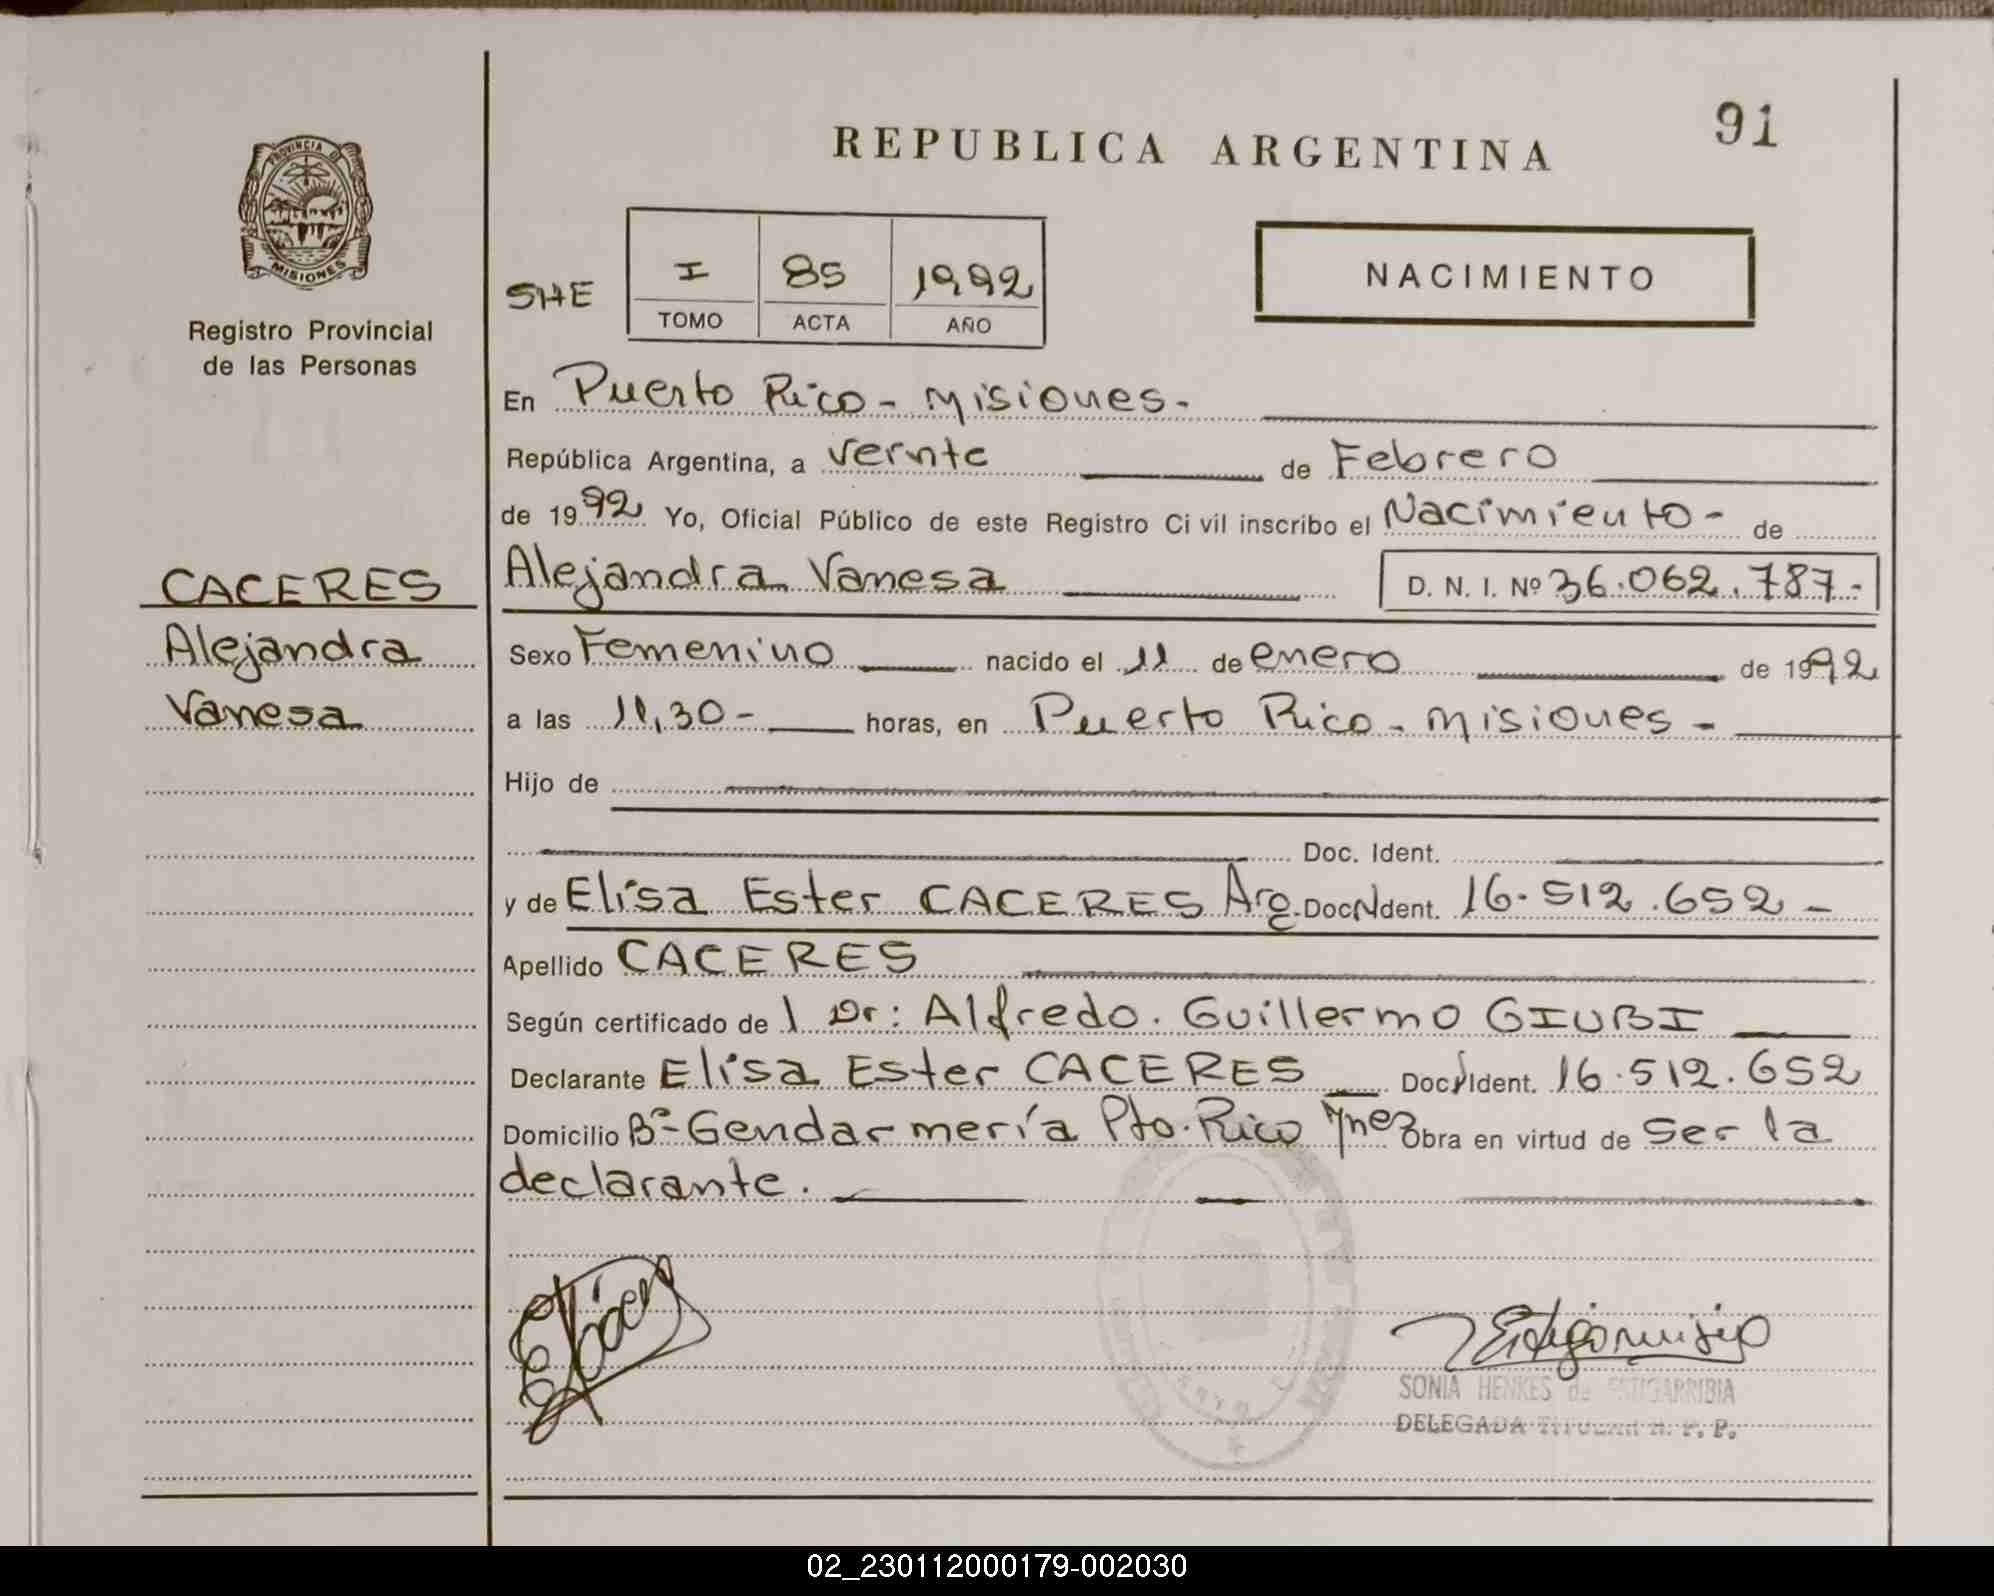 91
REPUBLICA ARGENTINA
PROVINCIA DE
MISIONES
Registro Provincial
de las Personas
SHE
I 85 1992
TOMO ACTA AÑO
NACIMIENTO
En Puerto Rico - Misiones -
República Argentina, a veinte de Febrero
de 1992 Yo, Oficial Público de este Registro Civil inscribo el Nacimiento - de
CACERES
Alejandra
Vanesa
Alejandra Vanesa D. N. I. Nº 36.062.787-
Sexo Femenino nacido el 11 de enero de 1992
a las 11,30 - horas, en Puerto Rico - Misiones -
Hijo de
Doc. Ident.
y de Elisa Ester CACERES Arg. Doc. Ident. 16.512.652 -
Apellido CACERES
Según certificado de 1 Dr: Alfredo. Guillermo GIUBI
Declarante Elisa Ester CACERES Doc. Ident. 16.512.652
Domicilio Bº Gendarmería Pto. Rico Mnes Obra en virtud de ser la
declarante.
SONIA HENKES de ESTIGARRIBIA
DELEGADA TITULAR R. P. P.
02_230112000179-002030